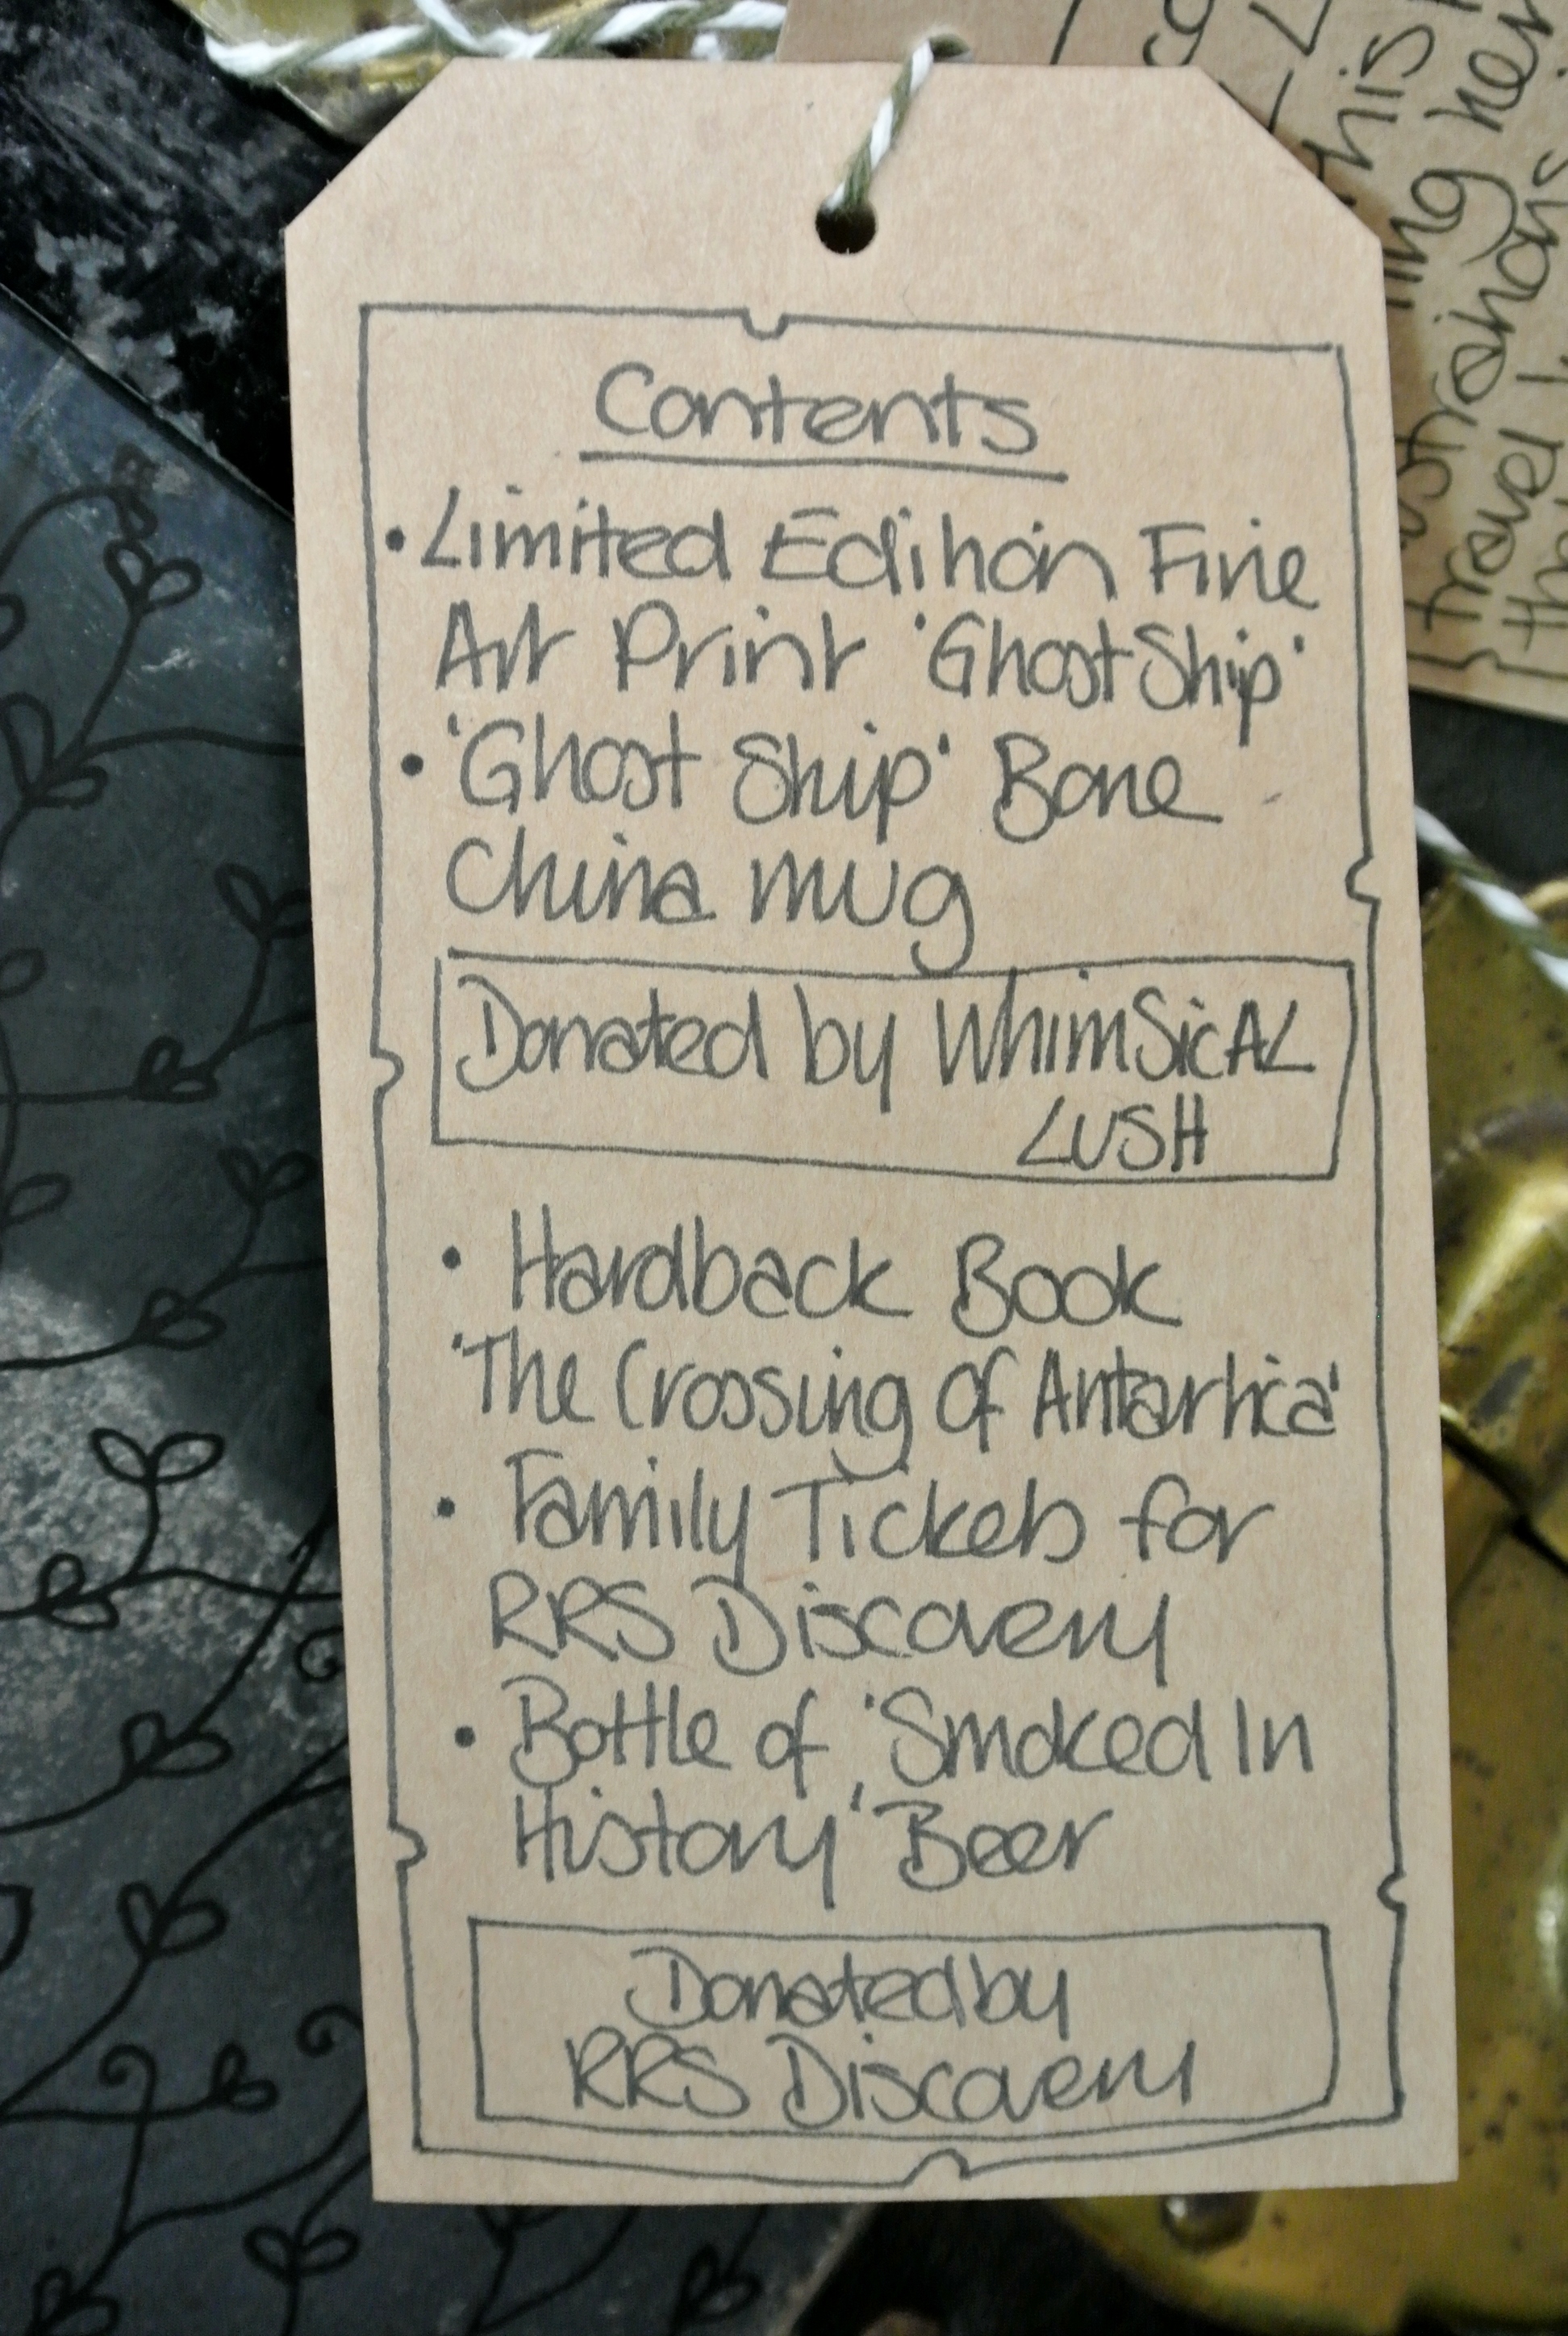 Contents
• Limited Edition Fine
Art Print 'Ghost Ship'
• 'Ghost Ship' Bone
China mug
Donated by WhimSicAL
LUSH
• Hardback Book
'The Crossing of Antartica'
• Family Tickets for
RRS Discovery
• Bottle of 'Smoked In
History' Beer
Donated by
RRS Discovery
this
travel